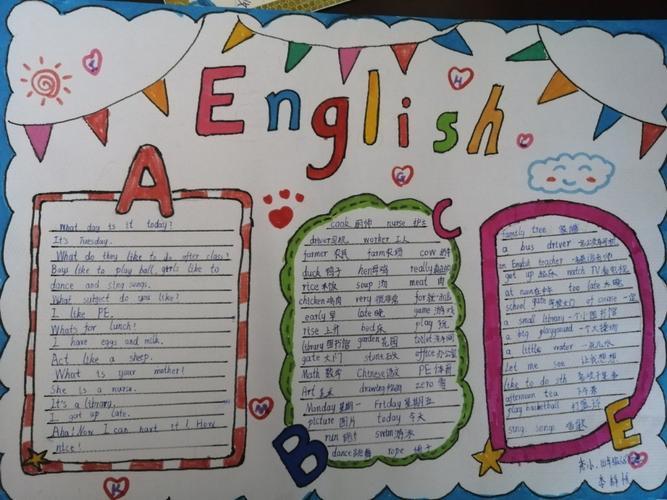 English
A
What day is it today?
It's Tuesday.
What do they like to do after class?
Boys like to play ball, girls like to
dance and sing songs.
What subject do you like?
I like PE.
Whats for lunch!
I have eggs and milk.
Act like a sheep.
What is your mother!
She is a nurse.
It's a library.
I got up late.
Aha! Now I can hant it! How
nice!
C
cook 厨师 nurse 护士
driver 司机 worker 工人
farmer 农民 farm 农场 cow 奶牛
duck 鸭子 hen 母鸡 really
rice 米饭 soup 汤 meat 肉
chicken 鸡肉 very for
early 早 late 晚 game 游戏
rise 上升 bad play 玩
library 图书馆 garden 花园 toilet
gate 大门 office 办公室
Math 数学 Chinese 语文 PE 体育
Art zero 零
Monday 星期一 Friday 星期五
picture 图片 today 今天
run 跑 swim 游泳
dance 跳舞 rope
B
family tree 家谱
a bus driver
an English teacher
get up 起床 watch TV 看电视
at noon 在中午 too late 太晚
school gate of course 一定
a small library 一个小图书馆
a big playground 一个大操场
a little water 一点儿水
Let me see 让我想想
like to do sth
afternoon tea 下午茶
play basketball 打篮球
sing songs 唱歌
E